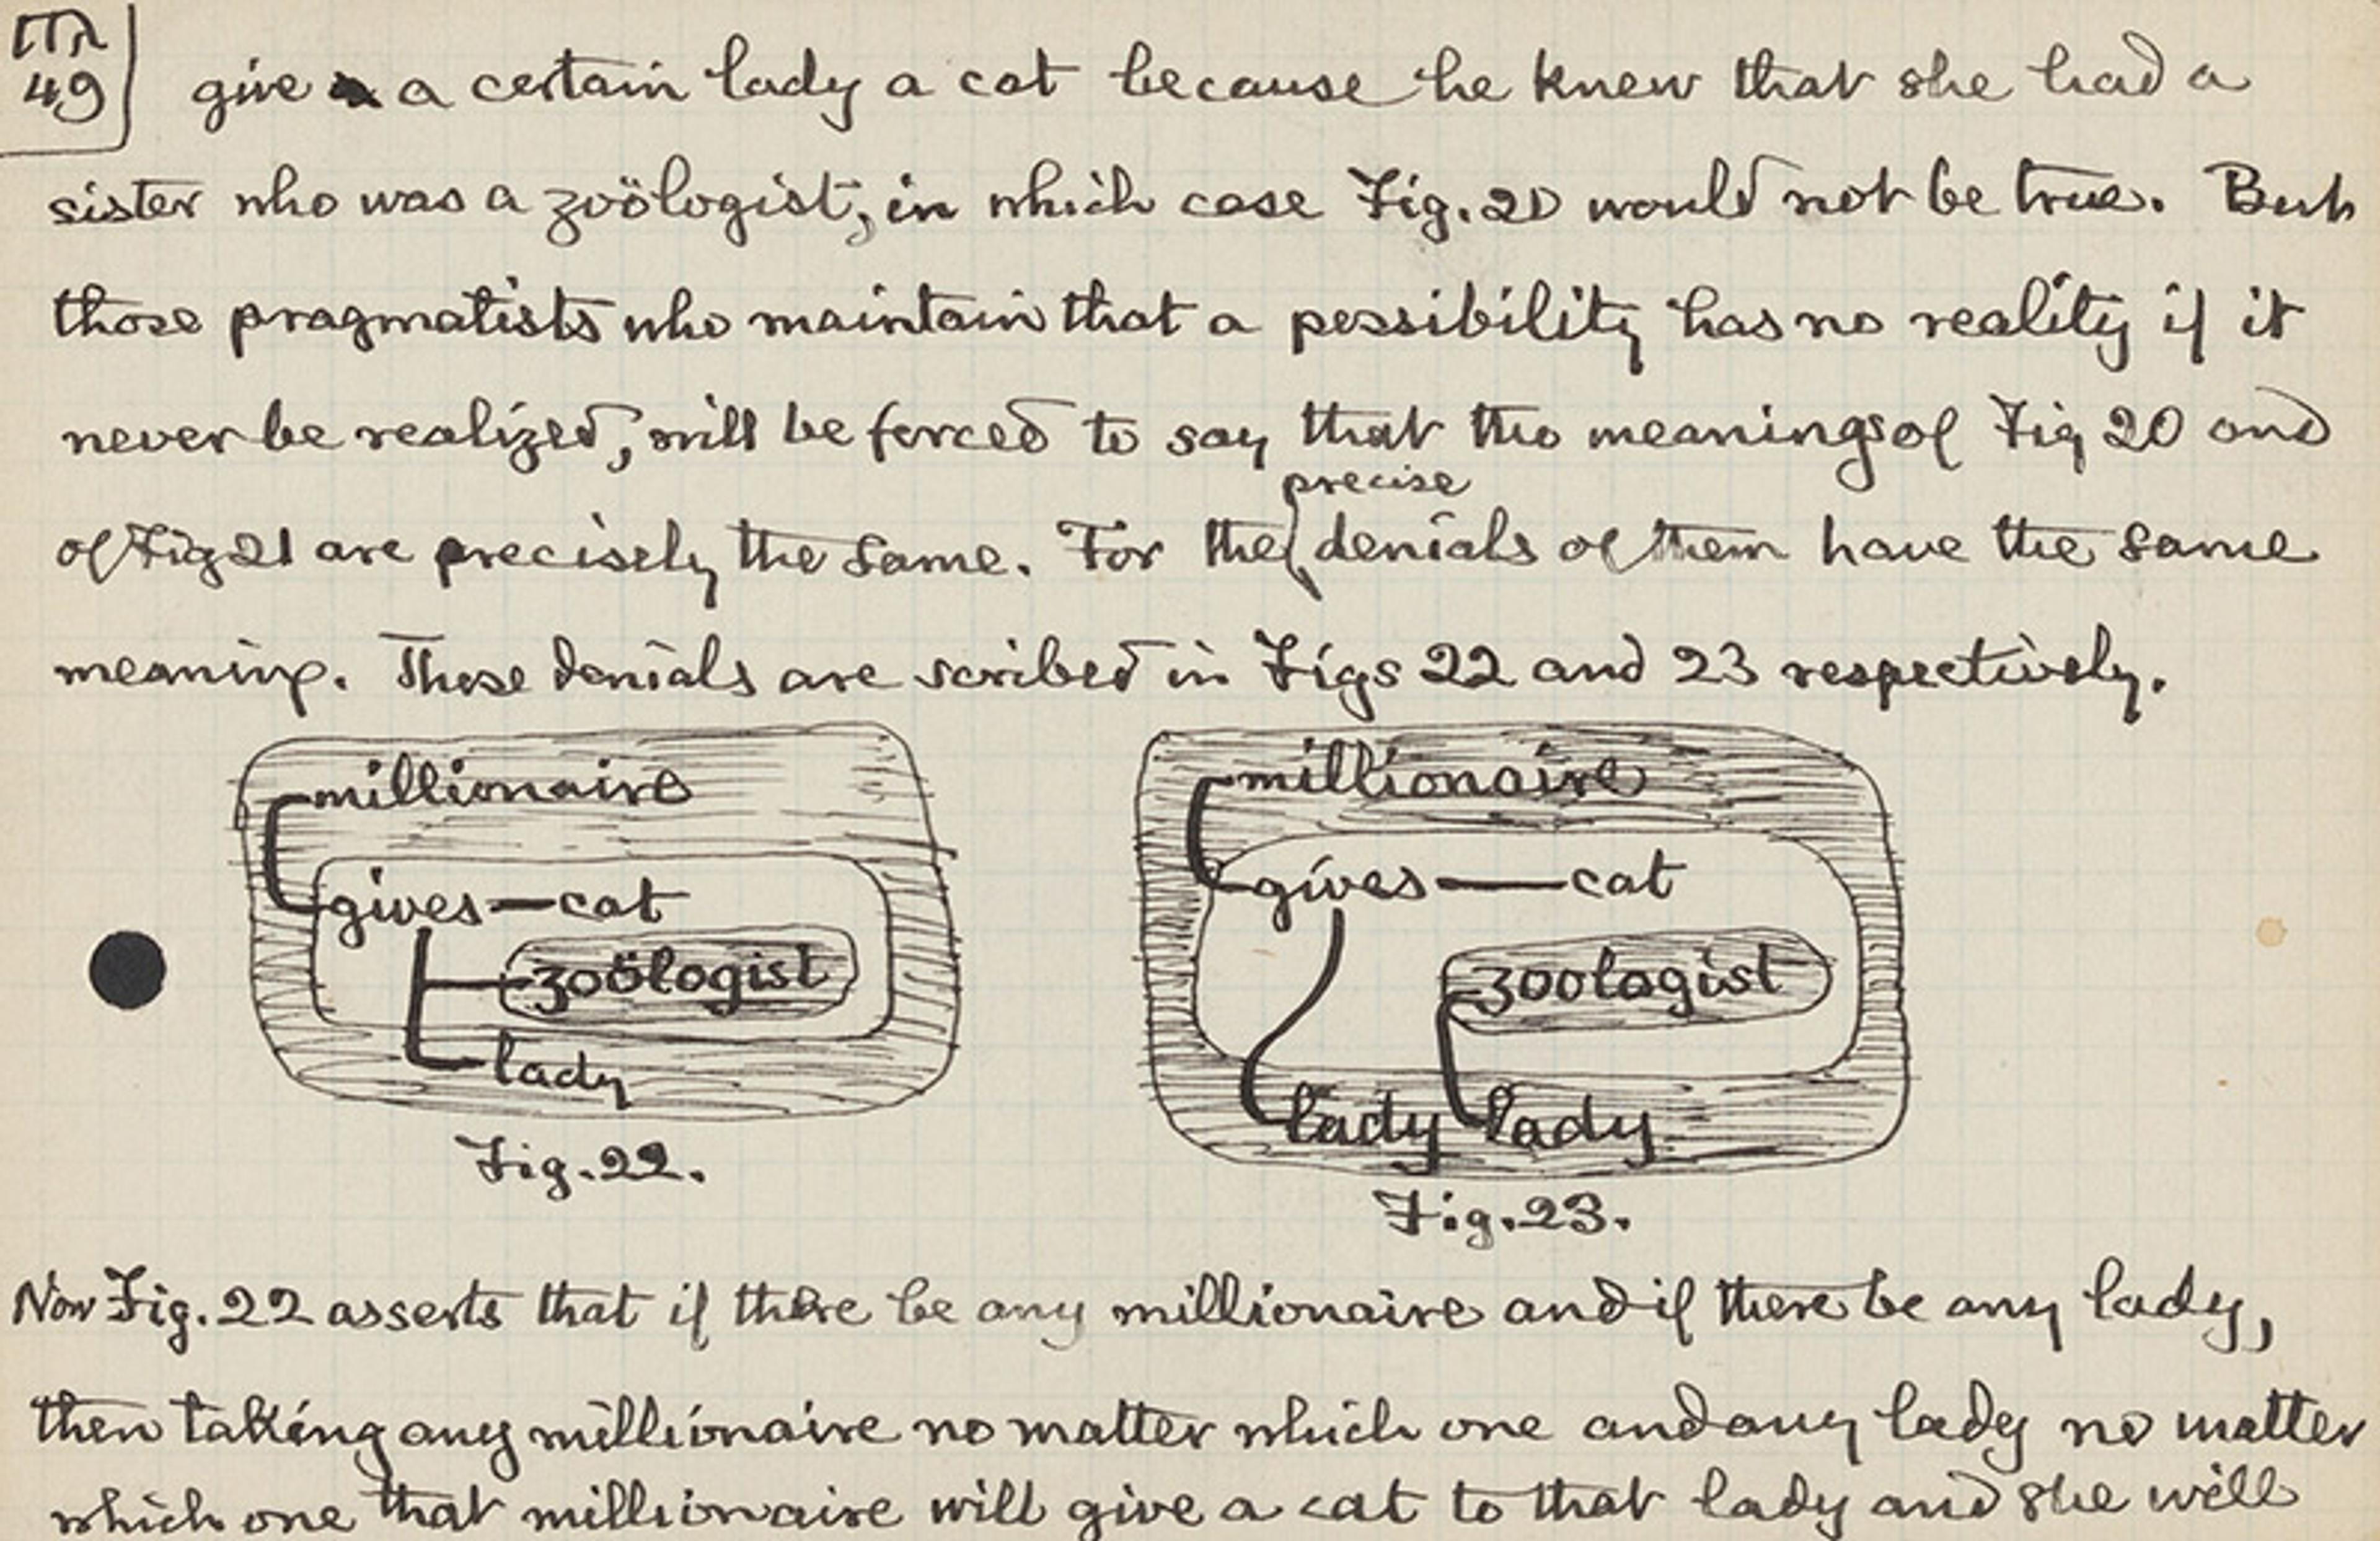 49
give a certain lady a cat because he knew that she had a
sister who was a zoölogist, in which case Fig. 20 would not be true. But
those pragmatists who maintain that a possibility has no reality if it
never be realized, will be forced to say that the meanings of Fig 20 and
precise
of Fig 21 are precisely the same. For the denials of them have the same
meaning. These denials are scribed in Figs 22 and 23 respectively.
millionaire
gives cat
zoölogist
lady
Fig. 22.
millionaire
gives cat
zoologist
lady lady
Fig. 23.
Now Fig. 22 asserts that if there be any millionaire and if there be any lady,
then taking any millionaire no matter which one and any lady no matter
which one that millionaire will give a cat to that lady and she will